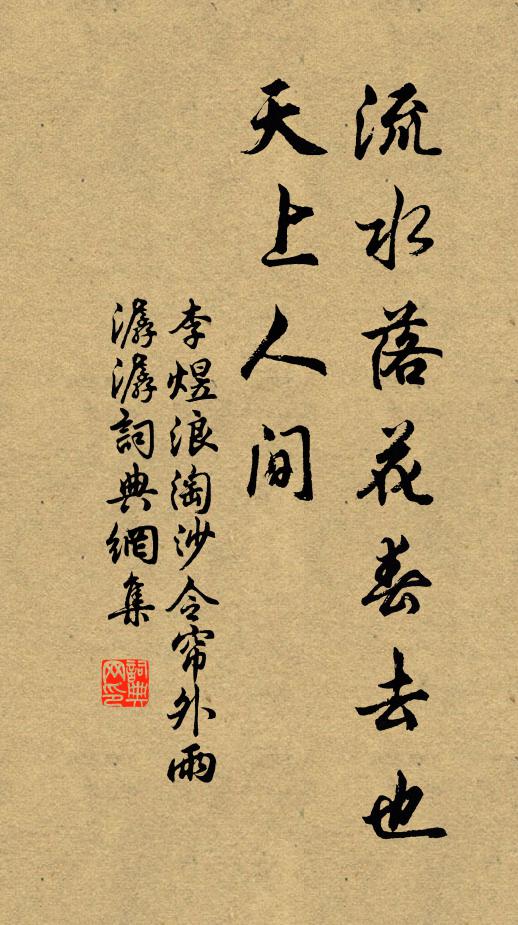 流水落花春去也
天上人间
李煜浪淘沙令帘外雨
潺潺詞典網集
詞典网印